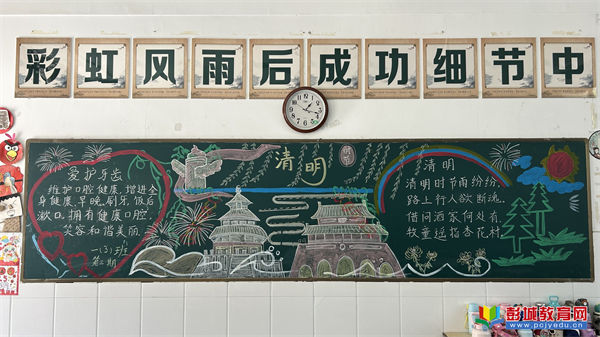 彩虹风雨后成功细节中
爱护牙齿
维护口腔健康,增进全
身健康,早晚刷牙,饭后
漱口。拥有健康口腔,
笑容和谐美丽。
一(3)班
第二期
清明
清明
清明时节雨纷纷,
路上行人欲断魂。
借问酒家何处有,
牧童遥指杏花村。
彭城教育网
www.pcjyedu.cn